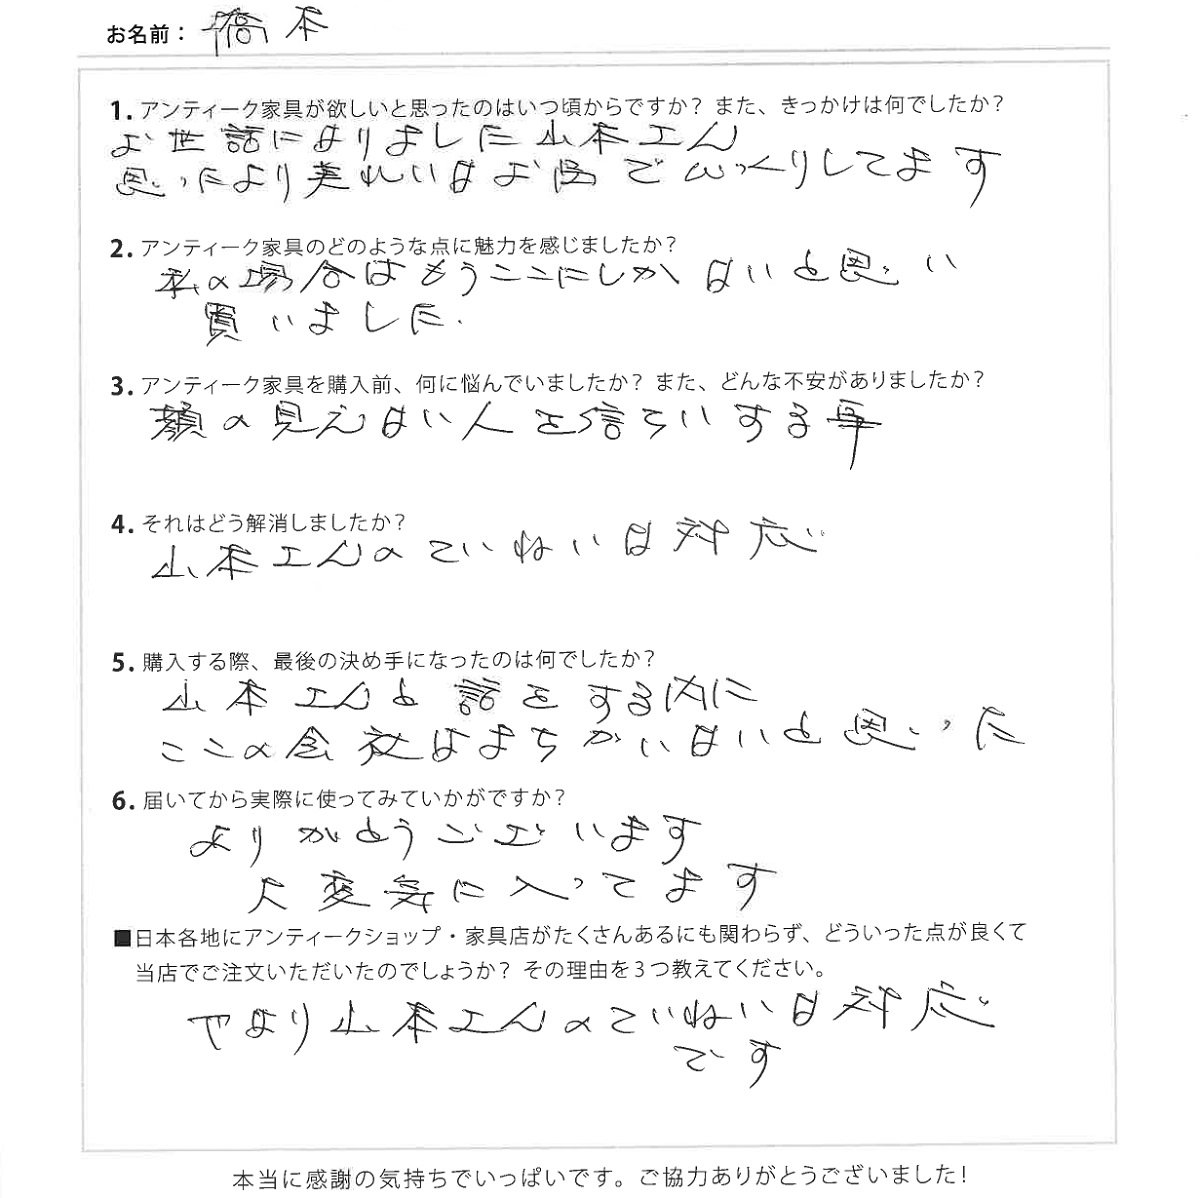 お名前： 橋本
1. アンティーク家具が欲しいと思ったのはいつ頃からですか？ また、きっかけは何でしたか？
お世話になりました山本さん
思ったより美れいなお品でびっくりしてます
2. アンティーク家具のどのような点に魅力を感じましたか？
私の場合はもうここにしかないと思い
買いました.
3. アンティーク家具を購入前、何に悩んでいましたか？ また、どんな不安がありましたか？
顔の見えない人を信らいする事
4. それはどう解消しましたか？
山本さんのていねいな対応
5. 購入する際、最後の決め手になったのは何でしたか？
山本さんと話をする内に
ここの会社はまちがいないと思いった
6. 届いてから実際に使ってみていかがですか？
ありがとうございます
大変気に入ってます
■日本各地にアンティークショップ・家具店がたくさんあるにも関わらず、どういった点が良くて
当店でご注文いただいたのでしょうか？ その理由を３つ教えてください。
やはり山本さんのていねいな対応
です
本当に感謝の気持ちでいっぱいです。ご協力ありがとうございました！